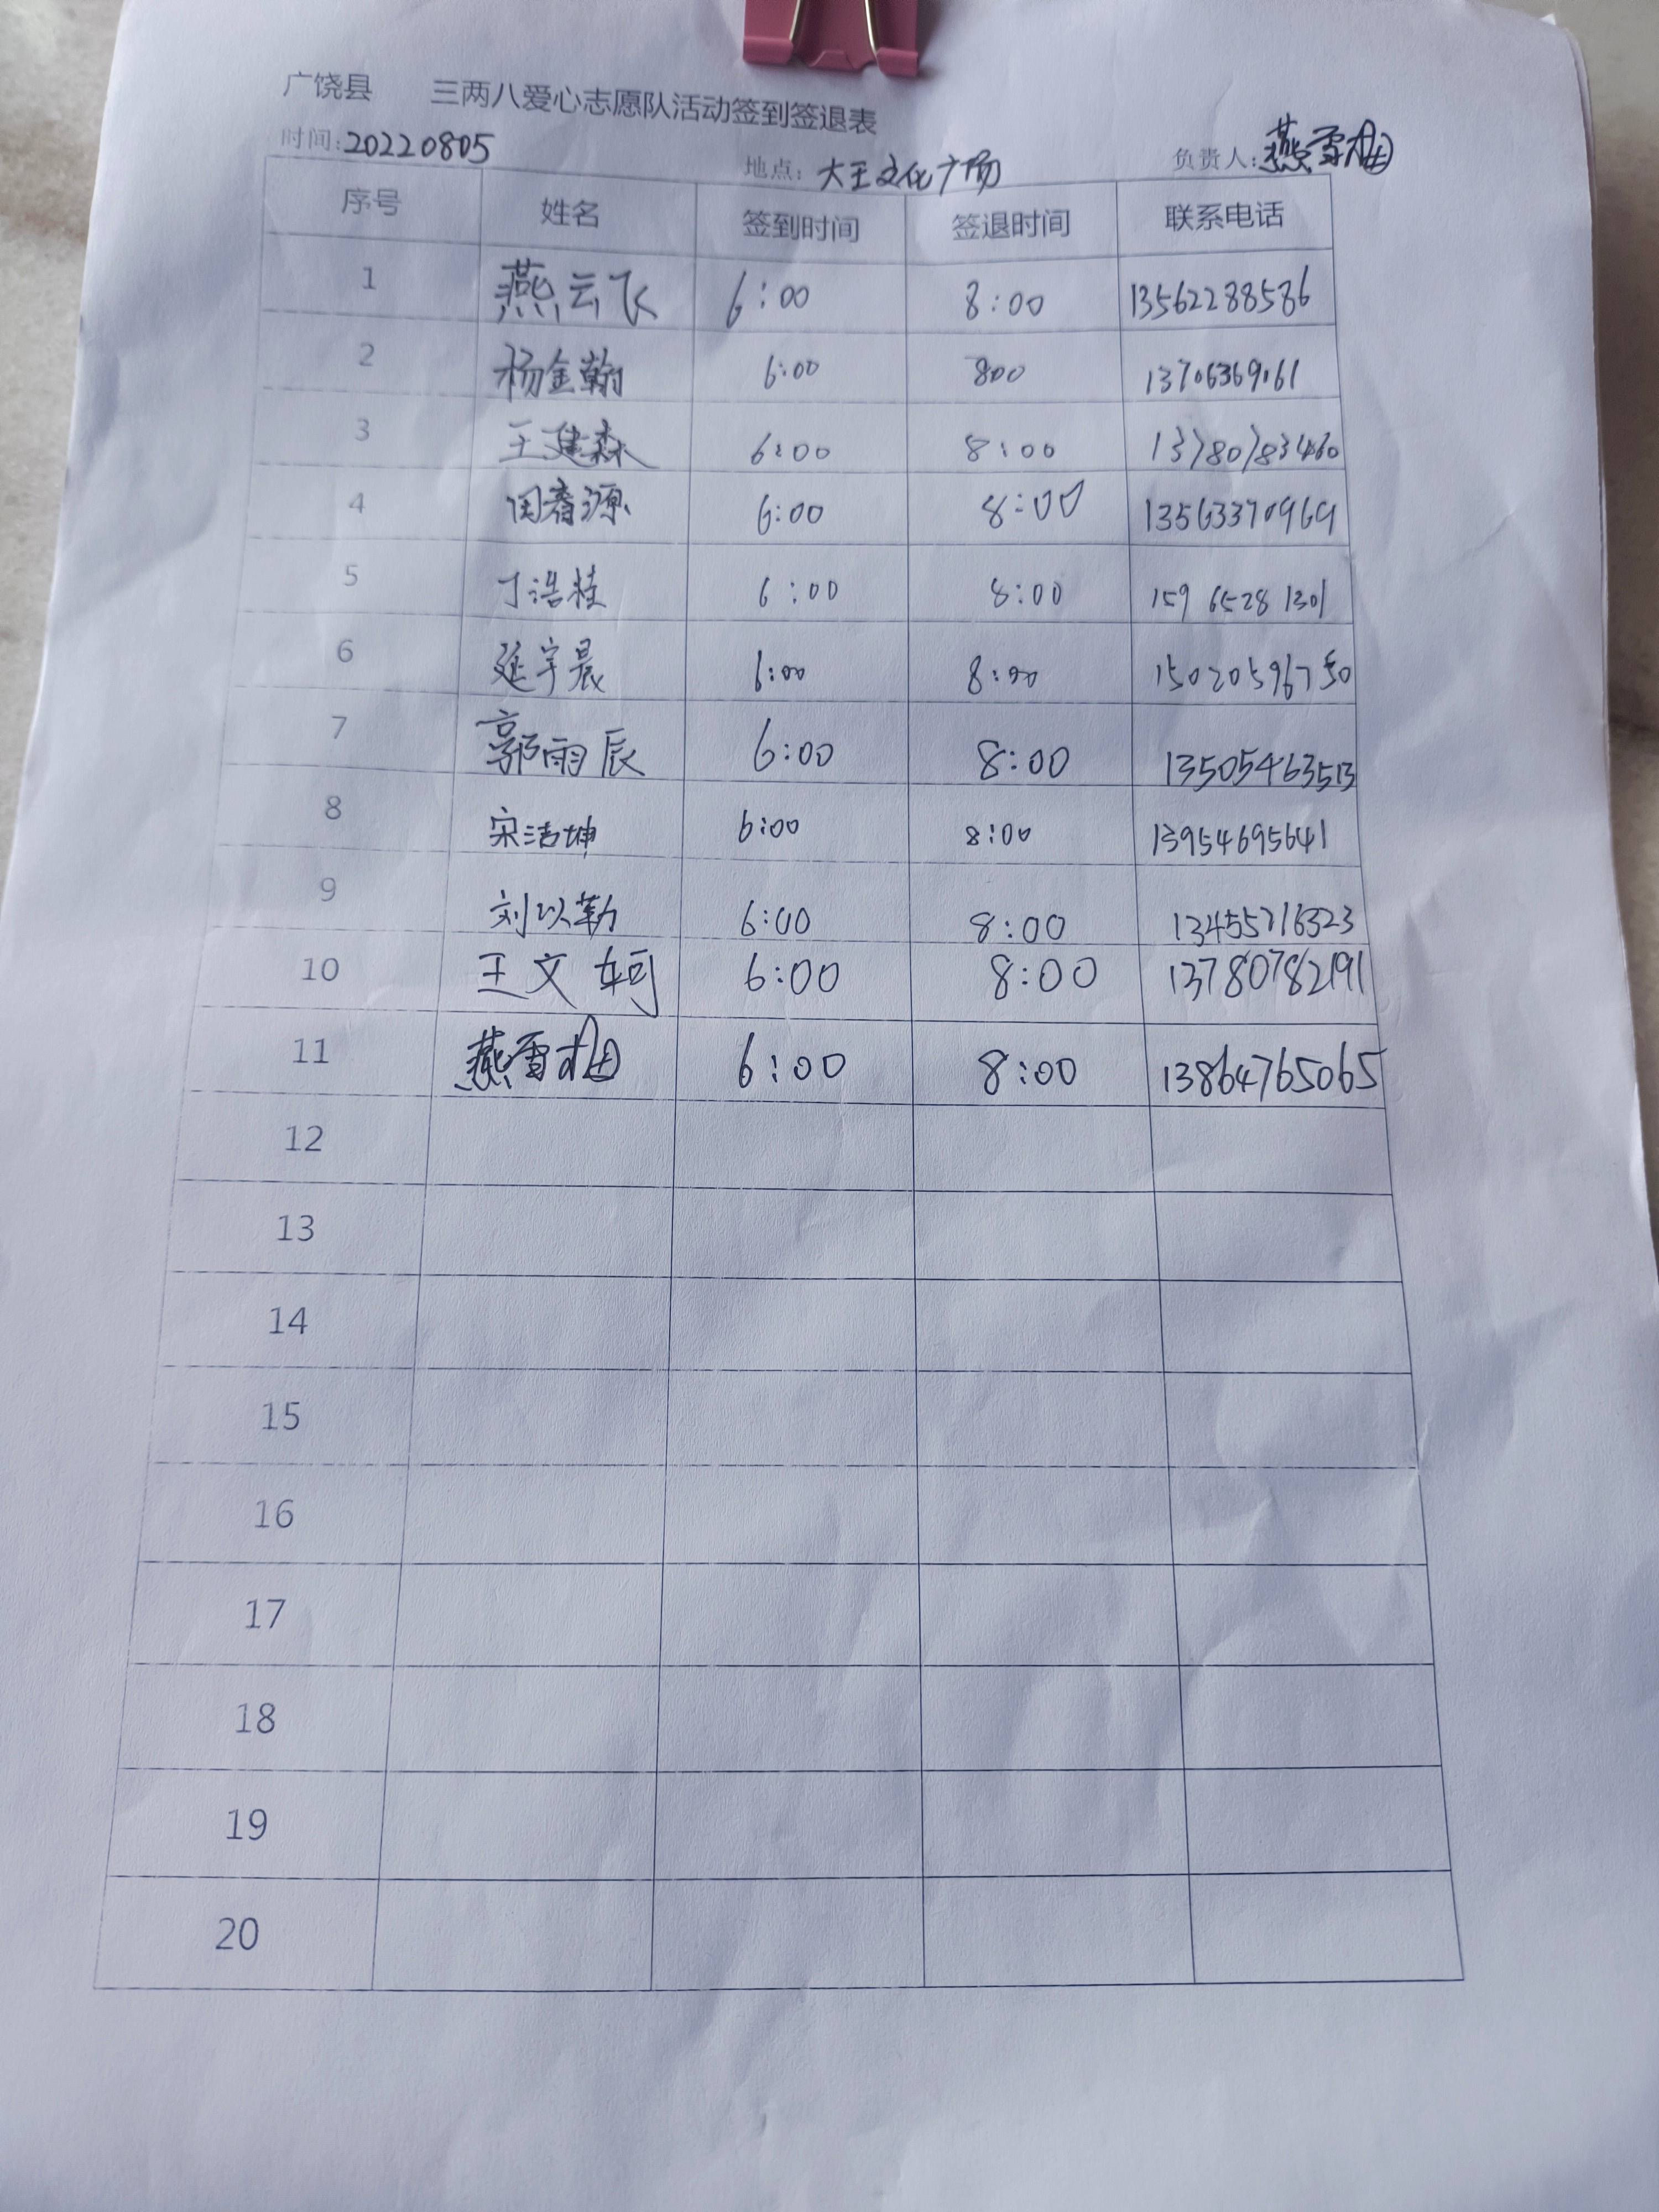 广饶县 三两八爱心志愿队活动签到签退表
时间:20220805 地点: 大王文化广场 负责人:燕雪梅
序号 姓名 签到时间 签退时间 联系电话
1 燕云飞 6:00 8:00 13562288586
2 杨金翰 6:00 800 13706369161
3 王建森 6:00 8:00 13780783460
4 源 6:00 8:00 13563370969
5 丁浩桂 6:00 8:00 159 6528 1301
6 延宇晨 6:00 8:00 15020596750
7 郭雨辰 6:00 8:00 13505463513
8 宋洁坤 6:00 8:00 13954695641
9 刘以勒 6:00 8:00 13455716323
10 王文轲 6:00 8:00 13780782191
11 燕雪梅 6:00 8:00 13864765065
12
13
14
15
16
17
18
19
20